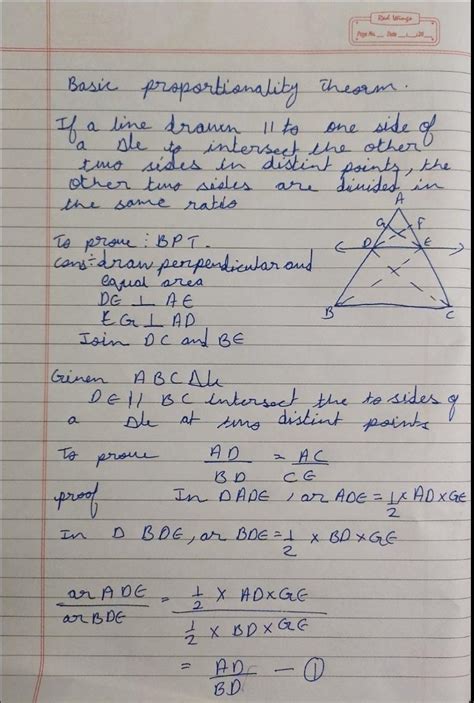 Red Wings
Page No. Date / /20
Basic proportionality Theorm.
If a line drawn || to one side of
a Δle to intersect the other
two sides in distint points, the
other two sides are divided in
the same ratio
A
G F
D E
B C
To prove : BPT.
Cons÷ draw perpendicular and
equal area
DE ⊥ AE
EG ⊥ AD
Join DC and BE
Ginen ABC Δle
DE || BC intersect the to sides of
a Δle at two distint points
To prove AD/BD = AC/CE
proof In DADE, ar ADE = 1/2 × AD × GE
In D BDE, ar BDE = 1/2 × BD × GE
ar ADE/ar BDE = 1/2 × AD × GE / 1/2 × BD × GE
= AD/BD — ①